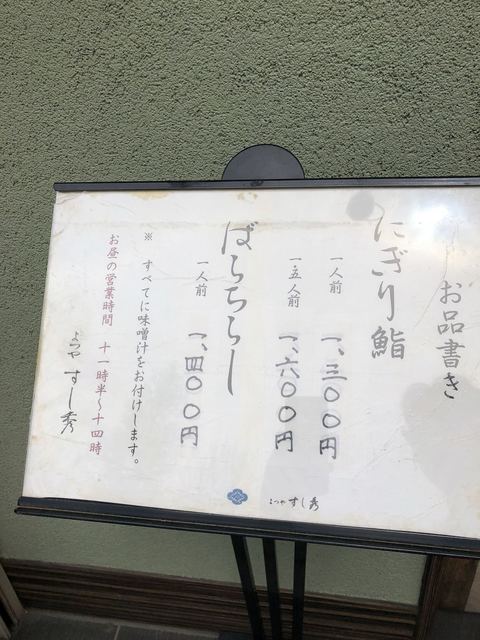 お品書き
にぎり鮨
一人前 一、三〇〇円
一五人前 一、六〇〇円
ばらちらし
一人前 一、四〇〇円
※ すべてに味噌汁をお付けします。
お昼の営業時間 十一時半〜十四時
よつや すし秀
よつや すし秀